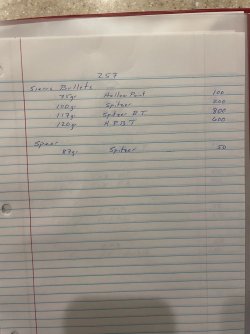 257
Sierra Bullets
75gr Hollow Point 100
100gr Spitzer 200
117gr Spitzer B.T 800
120gr H.P.B.T 600
Speer
87gr Spitzer 50